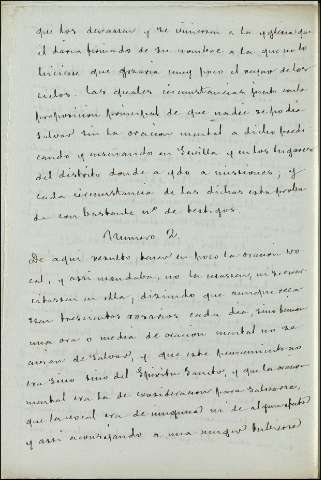 que los dexassen y se viniessen a la yglesia que
el daria firmado de su nombre a la que no lo
hiciese que gozaria muy poco el gozar de los
cielos. las quales circunstancias junto con la
proposicion principal de que nadie se podia
salvar sin la oracion mental a dicho predi
cando y enseñando en Sevilla y en los lugares
del distrito donde a ydo a missiones, y
cada circunstancia de las dichas esta proba
da con bastante nº de testigos.
Numero 2.
De aqui resulto tener en poco la oracion vo
cal, y assi mandaba, no la usassen, ni se exer
citassen en ella, diziendo que aunque reza
ssen trescientos rosarios cada dia, sino tenian
una ora o media de oracion mental no se
avian de salvar, y que este pensamiento no
era suyo sino del Espiritu Santo, y que la oracion
mental era la de consideracion para salvarse,
que la vocal era de ninguna ni de algun fruto
y assi aconsejando a una muger